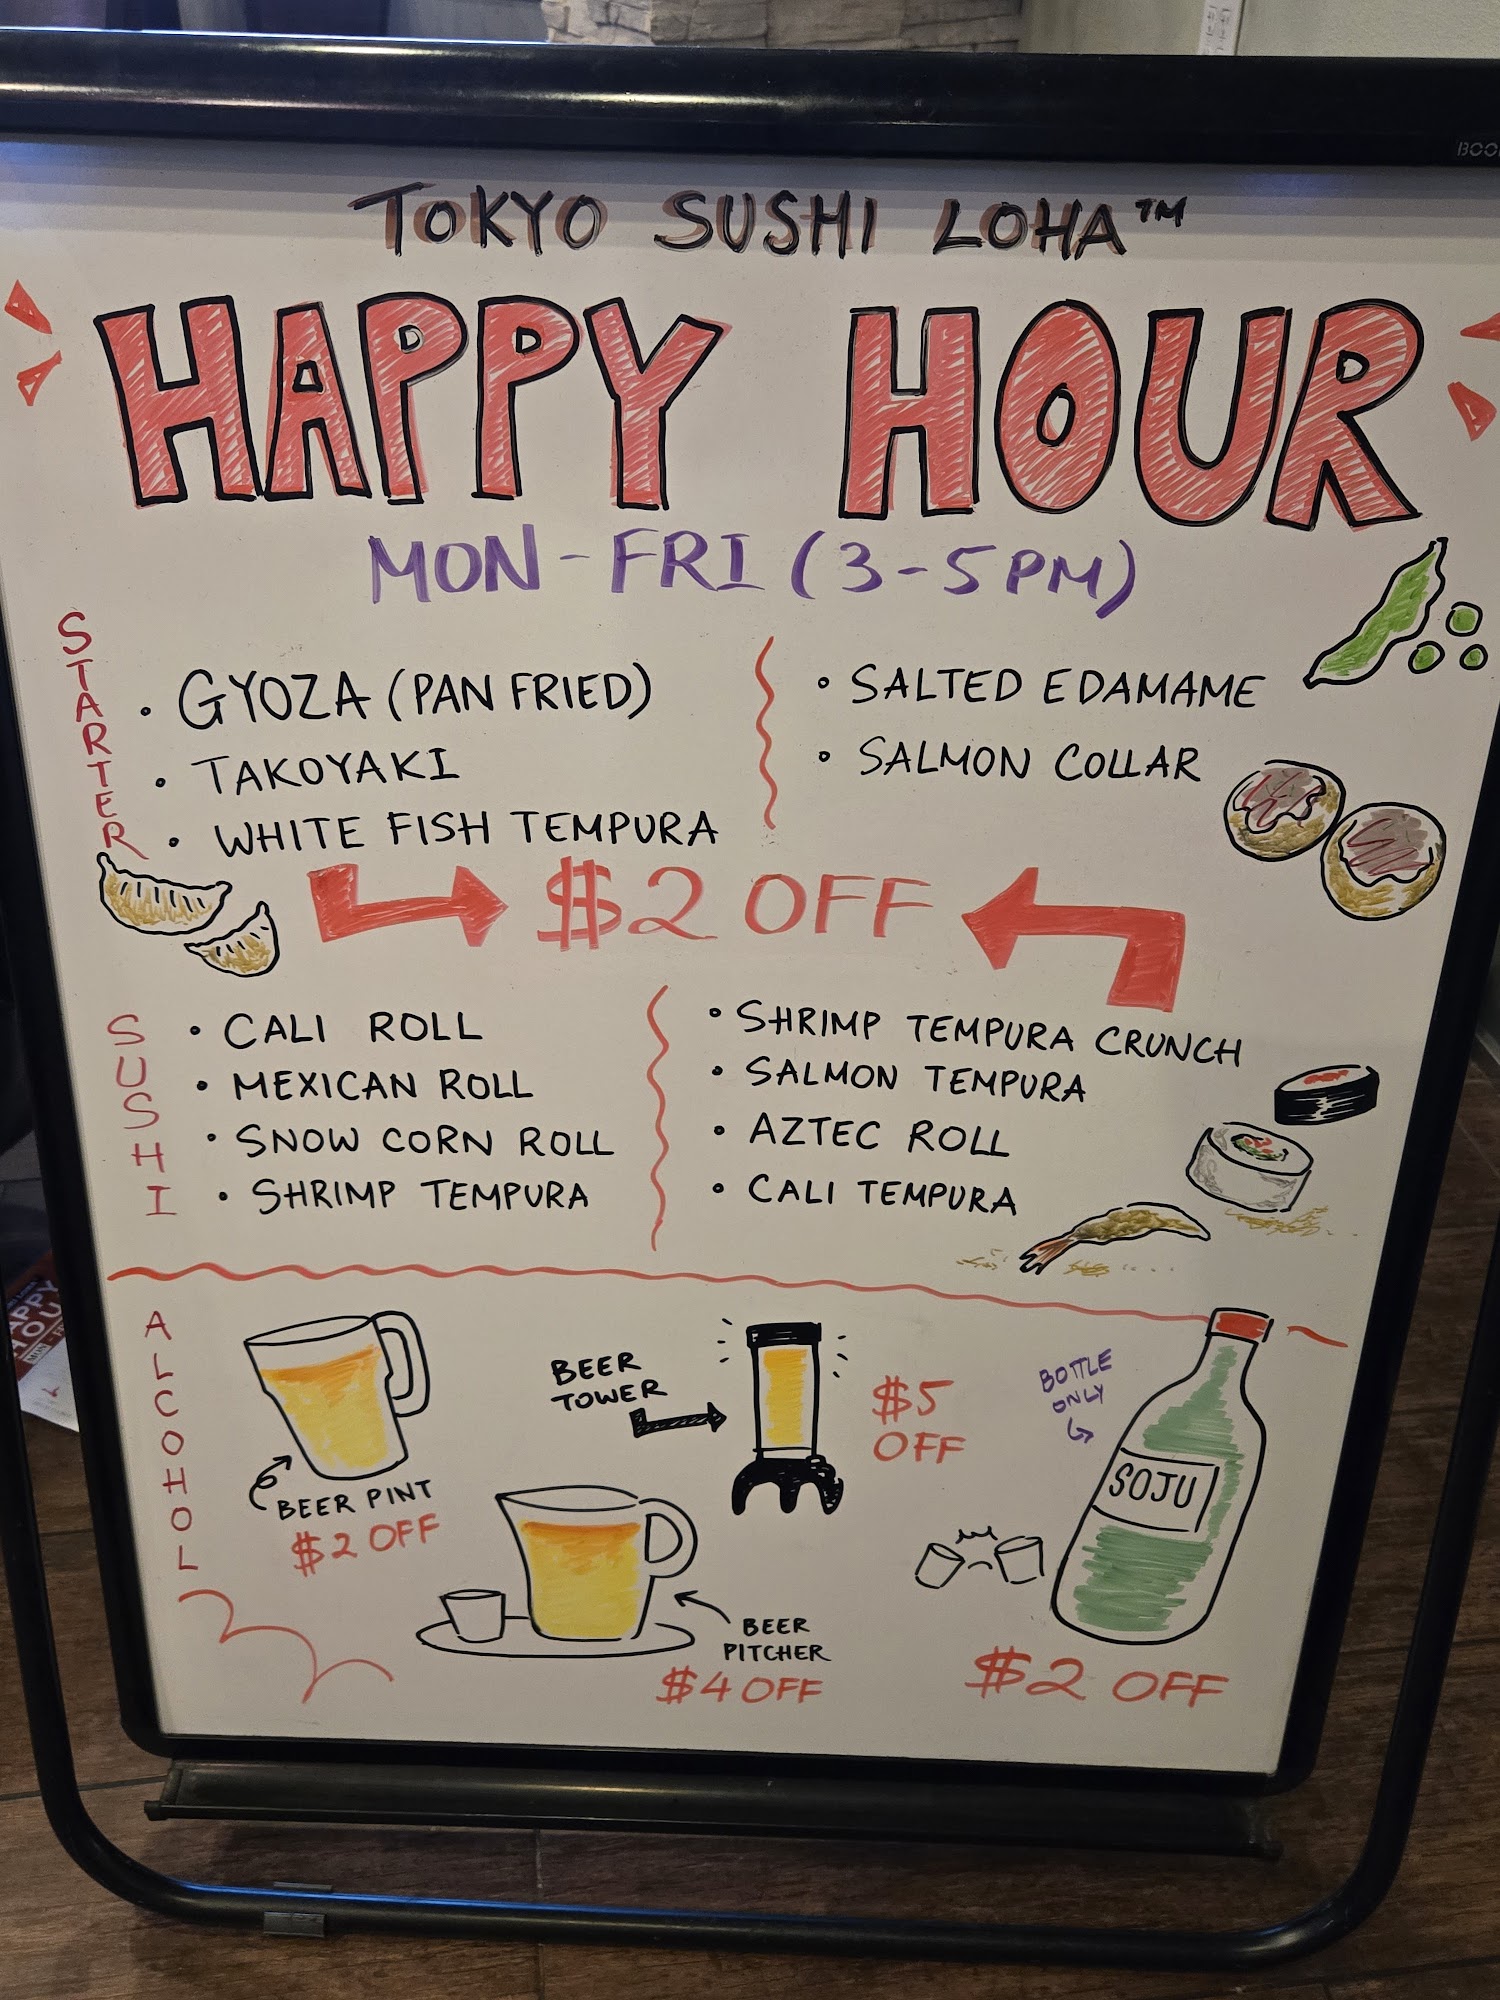 BOO
TOKYO SUSHI LOHA™
HAPPY HOUR
MON-FRI (3-5PM)
STARTER
• GYOZA (PAN FRIED)
• TAKOYAKI
• WHITE FISH TEMPURA
• SALTED EDAMAME
• SALMON COLLAR
$2 OFF
SUSHI
• CALI ROLL
• MEXICAN ROLL
• SNOW CORN ROLL
• SHRIMP TEMPURA
• SHRIMP TEMPURA CRUNCH
• SALMON TEMPURA
• AZTEC ROLL
• CALI TEMPURA
ALCOHOL
BEER PINT
$2 OFF
BEER
TOWER
$5
OFF
BEER
PITCHER
$4 OFF
BOTTLE
ONLY
SOJU
$2 OFF